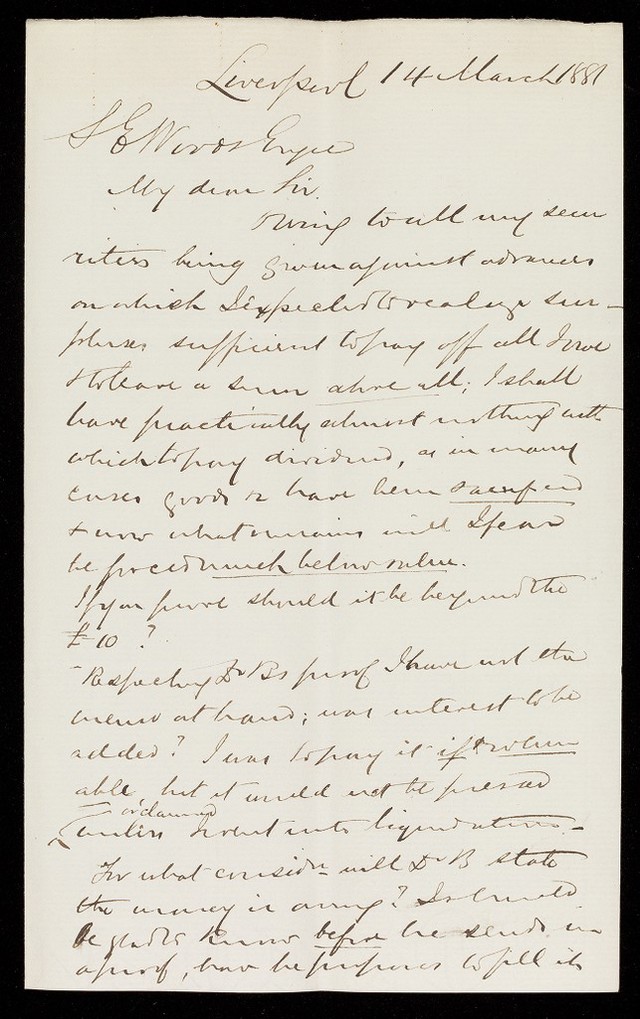 Liverpool 14 March 1881
S E Woods Esqre
My dear Sir.
Owing to all my secu
rities being given against advances
on which I expected to realize sur-
pluses sufficient to pay off all I owe
& to leave a sum above all; I shall
have practically almost nothing with
which to pay dividend, as in many
cases goods have been sacrificed
& now what remains will I fear
be forced much below value.
If you prove should it be beyond the
£10?
Respecting Dr Bs proof I have not the
memo at hand; was interest to be
added? I was to pay it if & when
able, but it would not be pressed
or claimed
unless I went into liquidation.-
For what considn will Dr B state
the money is owing? I should
be glad to know before he sends in
a proof, how he proposes to fill it